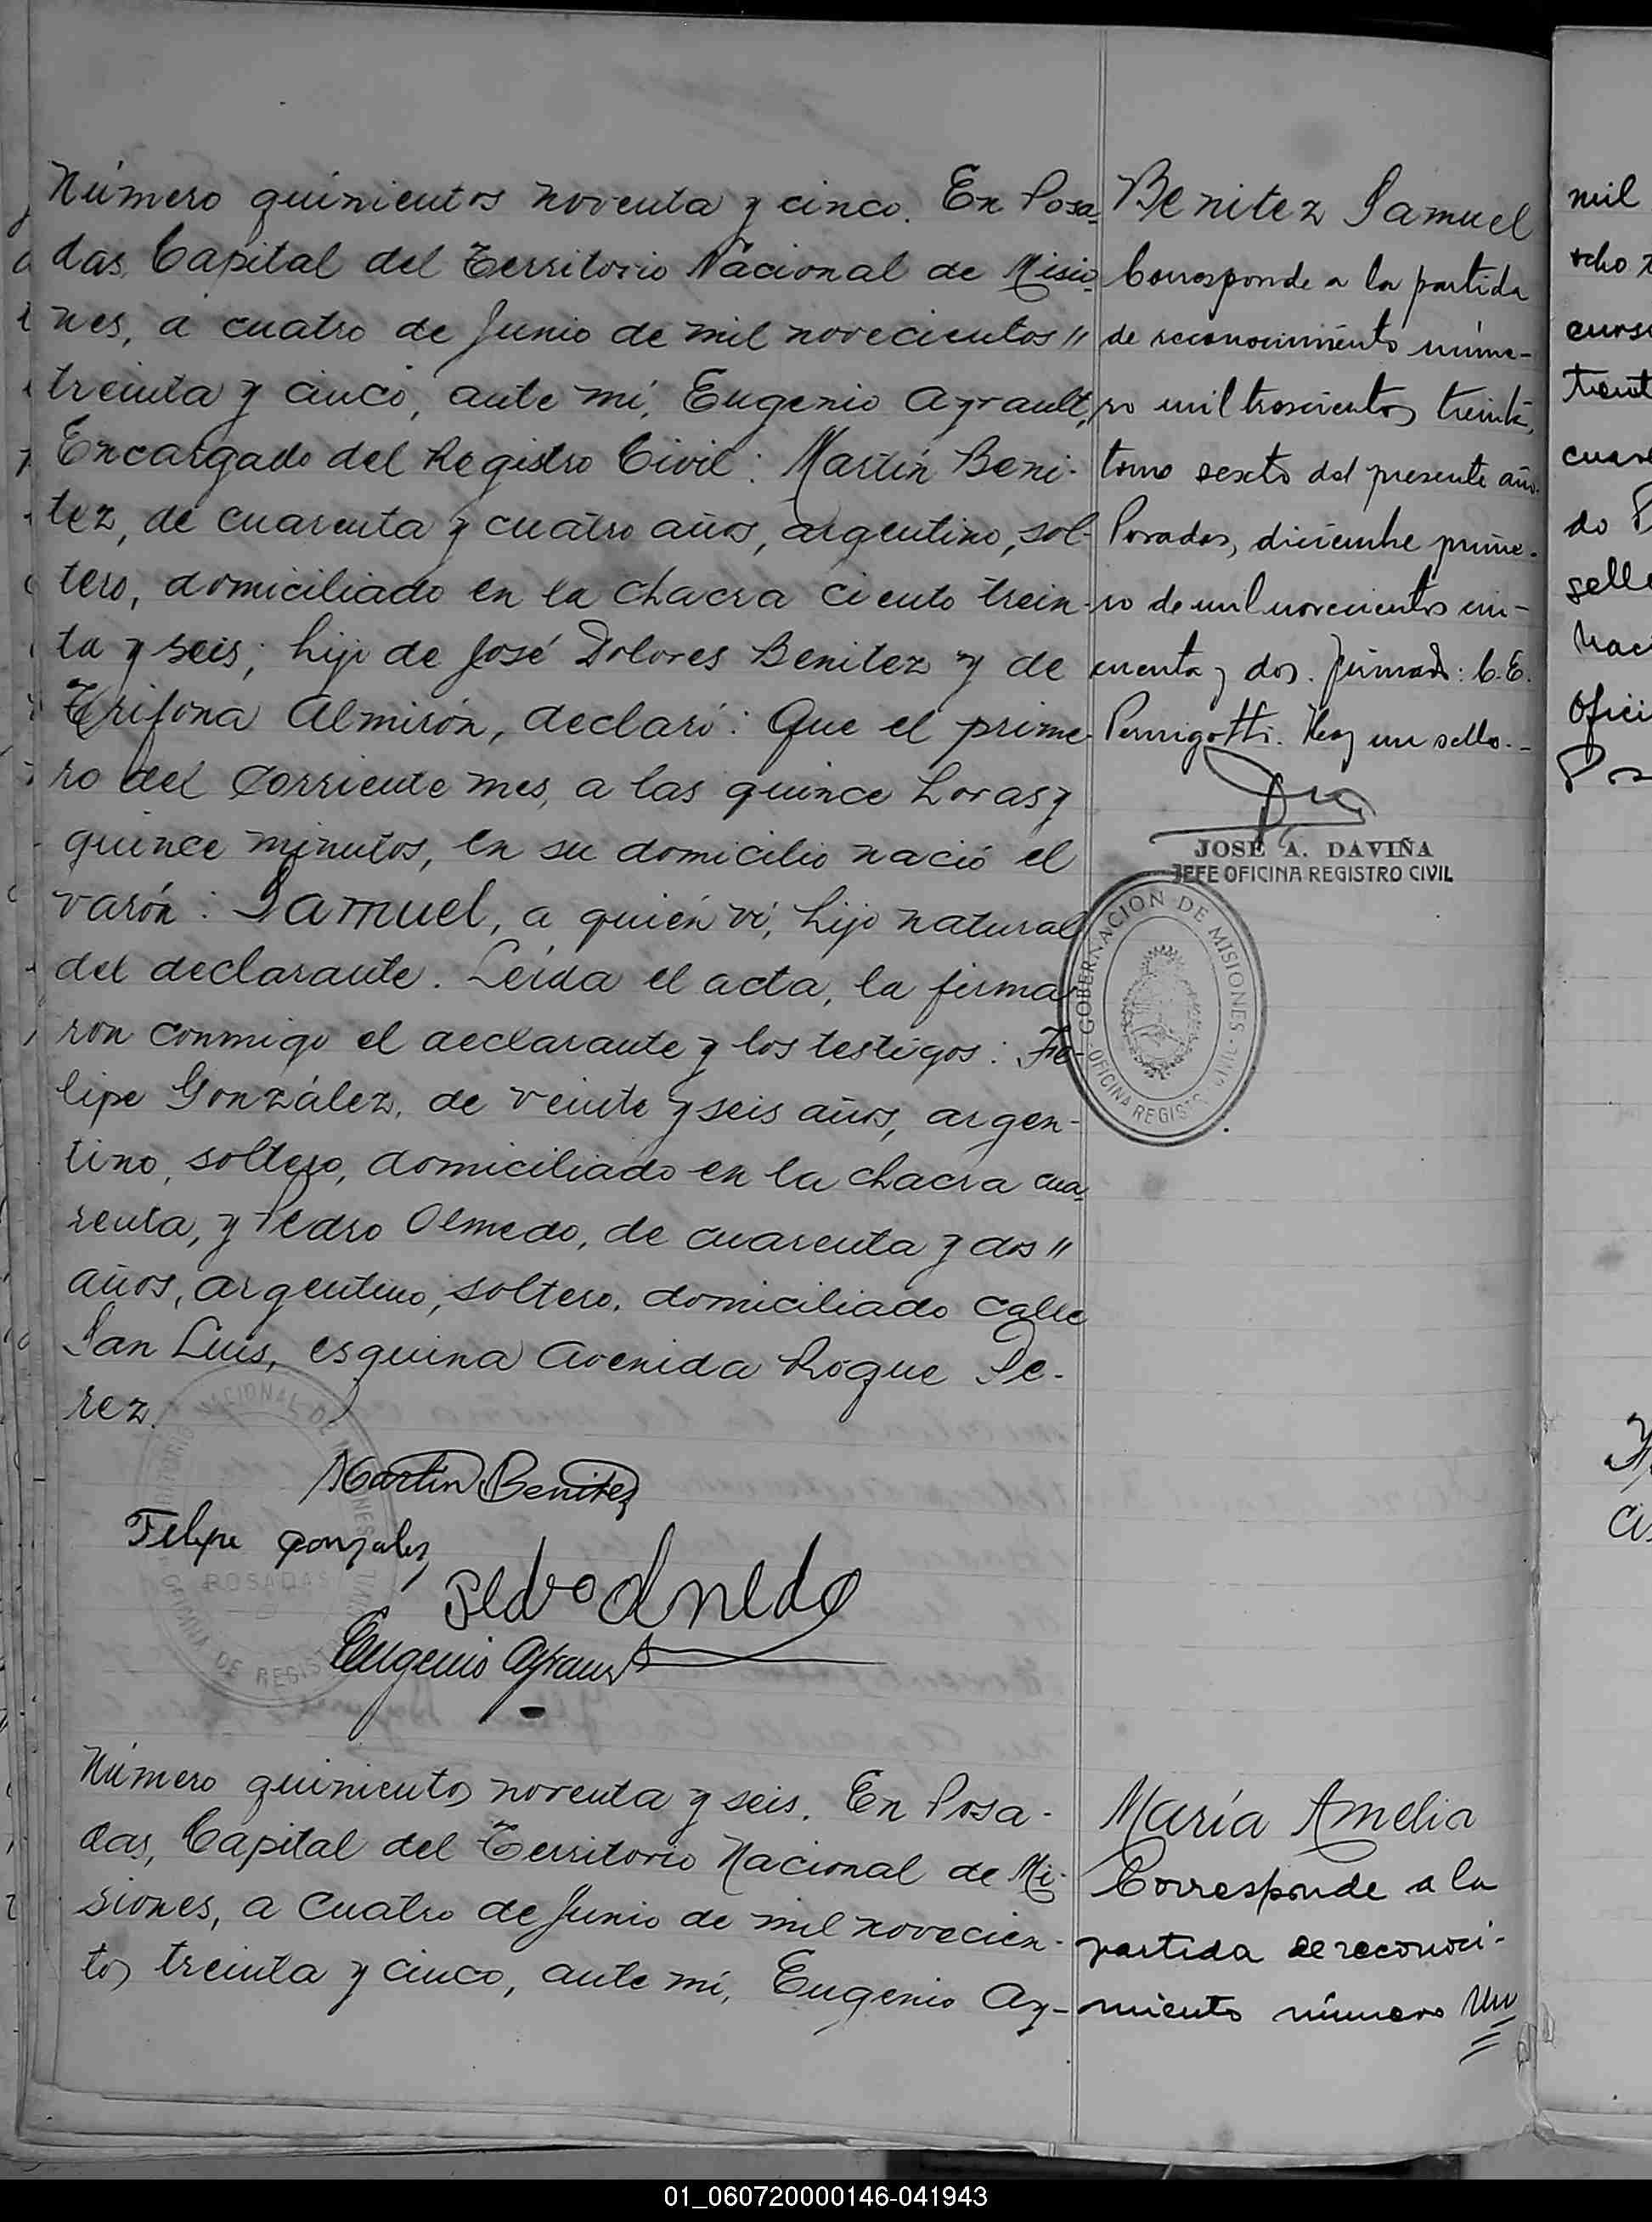 Número quinientos noventa y cinco. En Posa-
das, Capital del Territorio Nacional de Misio-
nes, a cuatro de Junio de mil novecientos "
treinta y cinco, ante mí, Eugenio Ayrault,
Encargado del Registro Civil: Martín Bení-
tez, de cuarenta y cuatro años, argentino, sol-
tero, domiciliado en la chacra ciento trein-
ta y seis; hijo de José Dolores Benítez y de
Trifona Almirón, declaró: Que el prime-
ro del corriente mes, a las quince horas y
quince minutos, en su domicilio nació el
varón: Samuel, a quién ví, hijo natural
del declarante. Leída el acta, la firma-
ron conmigo el declarante y los testigos: Fe-
lipe González, de veinte y seis años, argen-
tino, soltero, domiciliado en la chacra cua-
renta, y Pedro Olmedo, de cuarenta y dos "
años, argentino, soltero, domiciliado calle
San Luis, esquina Avenida Roque Pe-
rez.
Martin Benitez
Felipe Gonzalez
Pedro Olmedo
Eugenio Ayrault
Benitez Samuel
Corresponde a la partida
de reconocimiento núme-
ro mil trescientos treinta,
tomo sexto del presente año.
Posadas, diciembre prime-
ro de mil novecientos cin-
cuenta y dos. Firmado: C. E.
Pernigotti. Hay un sello.-
JOSE A. DAVIÑA
JEFE OFICINA REGISTRO CIVIL
GOBERNACION DE MISIONES
OFICINA REGISTRO CIVIL
NACIONAL DE MISIONES
POSADAS
OFICINA DE REGISTRO
Número quinientos noventa y seis. En Posa-
das, Capital del Territorio Nacional de Mi-
siones, a cuatro de Junio de mil novecien-
tos treinta y cinco, ante mí, Eugenio Ay-
María Amelia
Corresponde a la
partida de reconoci-
miento número Un
mil
ocho
curso
treint
cuare
do
selle
hac
Ofici
Po
01_060720000146-041943